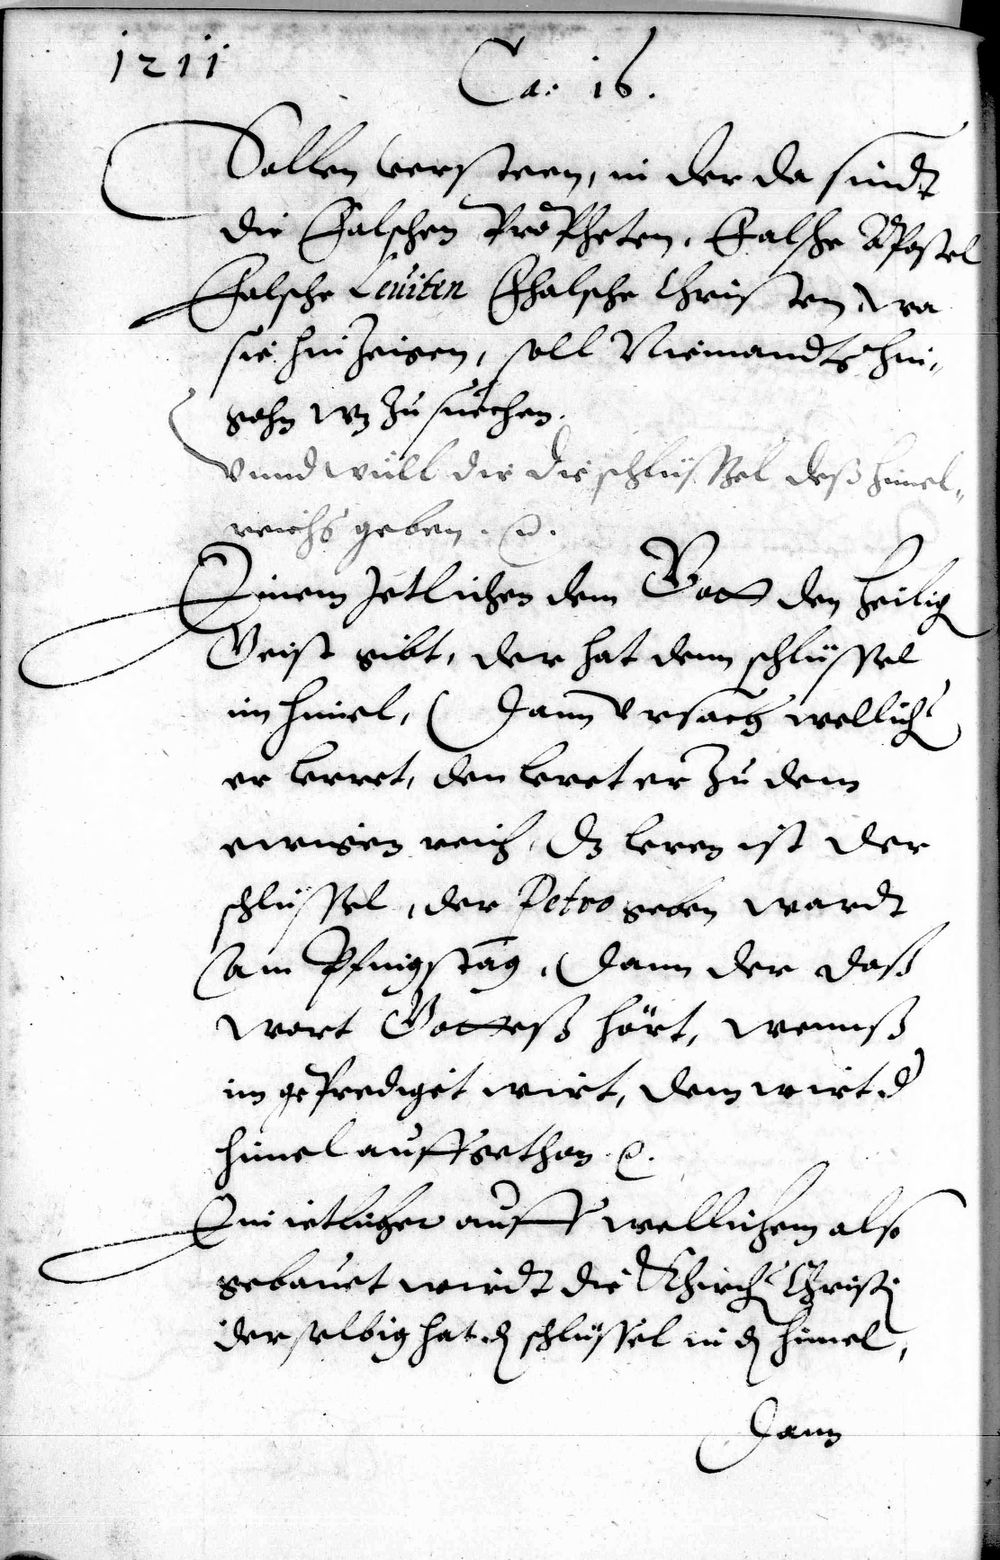 1211
Ca: 16.
Sollen versteen, in der da sindt
die Falschen Propheten, Falsche Apostel
Falsche Leuiten Fhalsche Christen, wa
sie hin Zeigen, soll Niemandts hin,,
gehn wz zu suechen.
Vnnd wüll dir die schlüssel deß himel,,
reichs geben. ꝛc.
Einem Jetlichen dem Gott den heilig
Geist gibt, der hat denn schlüssel
im himel, (Dann vrsach wellich
er lerret, den leret er Zu dem
ewigen reich, Dz leren ist der
schlüssel, der Petro geben wardt
Am Pfingstag, (Dann der daß
wort Gotteß hört, wennß
im geprediget wirt, dem wirt d
himel auffgethon. ꝛc.
Ein ietlicher auff wellichem also
gebauet wirdt die Khirch Christi
derselbig hat dz schlüssel in dz himel,
Dann